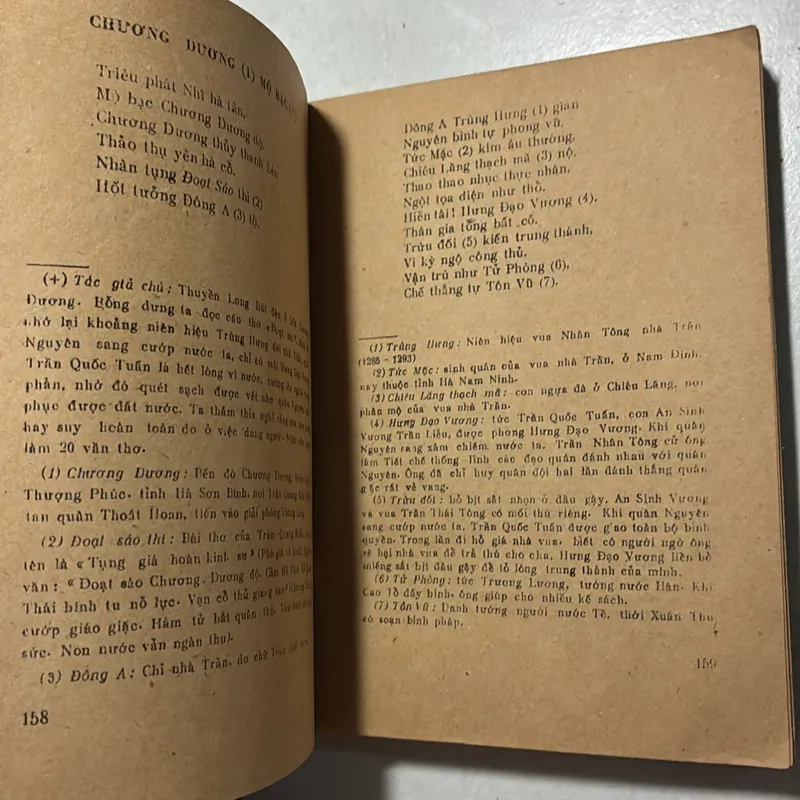 CHƯƠNG DƯƠNG (1) MỘ BẠC (+)
Triêu phát Nhĩ hà tân,
Mộ bạc Chương Dương độ,
Chương Dương thủy thanh liên
Thảo thụ yên hà cố.
Nhân tụng Đoạt Sáo thi (2)
Hốt tưởng Đông A (3) tộ,
(+) Tác giả chú: Thuyền Long
Dương. Bỗng dưng ta đọc câu thơ «Đoạt
nhớ lại khoảng niên hiệu Trùng Hưng đời nhà
Nguyên sang cướp nước ta, chỉ có một
Trần Quốc Tuấn là hết lòng vì nước,
phần, nhờ đó quét sạch được vết nhơ
phục được đất nước. Ta thầm thía nghĩ rằng
hay suy hoàn toàn do ở việc dùng người.
làm 20 vần thơ.
(1) Chương Dương: Bến đò Chương Dương,
Thượng Phúc, tỉnh Hà Sơn Bình, nơi Trần Quang Khải
tan quân Thoát Hoan, tiến vào giải phóng Thăng Long.
(2) Đoạt sáo thi: Bài thơ của Trần Quang Khải
tên là «Tụng giá hoàn kinh sư» (Phò giá về kinh)
văn: «Đoạt sáo Chương Dương độ, Cầm Hồ
Thái bình tu nỗ lực. Vạn cổ thử giang san»
cướp giáo giặc. Hàm tử bắt quân thù. Thái bình
sức. Non nước vẫn ngàn thu).
(3) Đông A: Chỉ nhà Trần, do chữ Trần
158
Đông A Trùng Hưng (1) gian
Nguyên binh tự phong vũ.
Tức Mặc (2) kim âu thương,
Chiêu Lăng thạch mã (3) nộ.
Thao thao nhục thực nhân,
Ngột tọa diện như thổ.
Hiền tai! Hưng Đạo Vương (4),
Thân gia tổng bất cố.
Trừu đối (5) kiến trung thành,
Vi kỷ ngộ công thủ.
Vận trù như Tử Phòng (6),
Chế thắng tự Tôn Vũ (7).
(1) Trùng Hưng: Niên hiệu vua Nhân Tông nhà Trần
(1285 - 1293)
(2) Tức Mặc: sinh quán của vua nhà Trần, ở Nam Định,
nay thuộc tỉnh Hà Nam Ninh.
(3) Chiêu Lăng thạch mã: con ngựa đá ở Chiêu Lăng, nơi
phần mộ của vua nhà Trần.
(4) Hưng Đạo Vương: tức Trần Quốc Tuấn, con An Sinh
Vương Trần Liễu, được phong Hưng Đạo Vương. Khi quân
Nguyên sang xâm chiếm nước ta, Trần Nhân Tông cử ông
làm Tiết chế thống lĩnh các đạo quân đánh nhau với quân
Nguyên. Ông đã chỉ huy quân đội hai lần đánh thắng quân
giặc rất vẻ vang.
(5) Trừu đối: bỏ bịt sắt nhọn ở đầu gậy, An Sinh Vương
và vua Trần Thái Tông có mối thù riêng. Khi quân Nguyên
sang cướp nước ta, Trần Quốc Tuấn được giao toàn bộ binh
quyền. Trong lần đi hộ giá nhà vua, biết có người ngờ ông
sẽ hại nhà vua để trả thù cho cha, Hưng Đạo Vương liền bỏ
miếng sắt bịt đầu gậy để tỏ lòng trung thành của mình.
(6) Tử Phòng: tức Trương Lương, tướng nước Hán. Khi
Cao Tổ dấy binh, ông giúp cho nhiều kế sách.
(7) Tôn Vũ: Danh tướng người nước Tề, thời Xuân Thu
có soạn binh pháp.
159